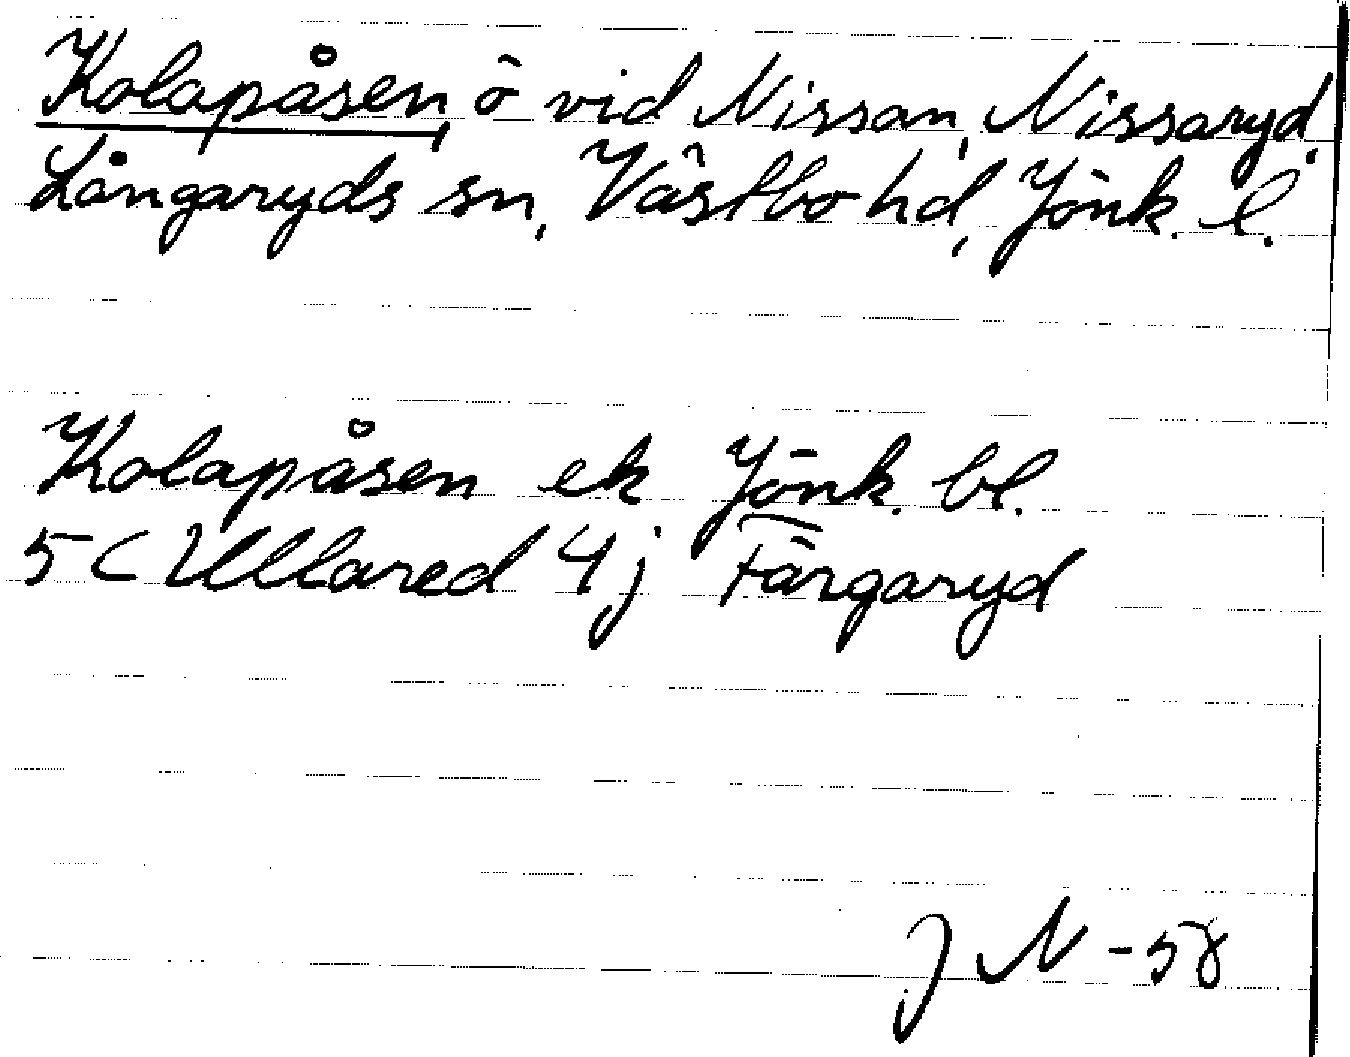 Kolapåsen, ö vid Nissan, Nissaryd,
Långaryds sn, Västbo hd, Jönk. l.
Kolapåsen ek Jönk. bl.
5 C Ullared 4j Färgaryd
J N -58